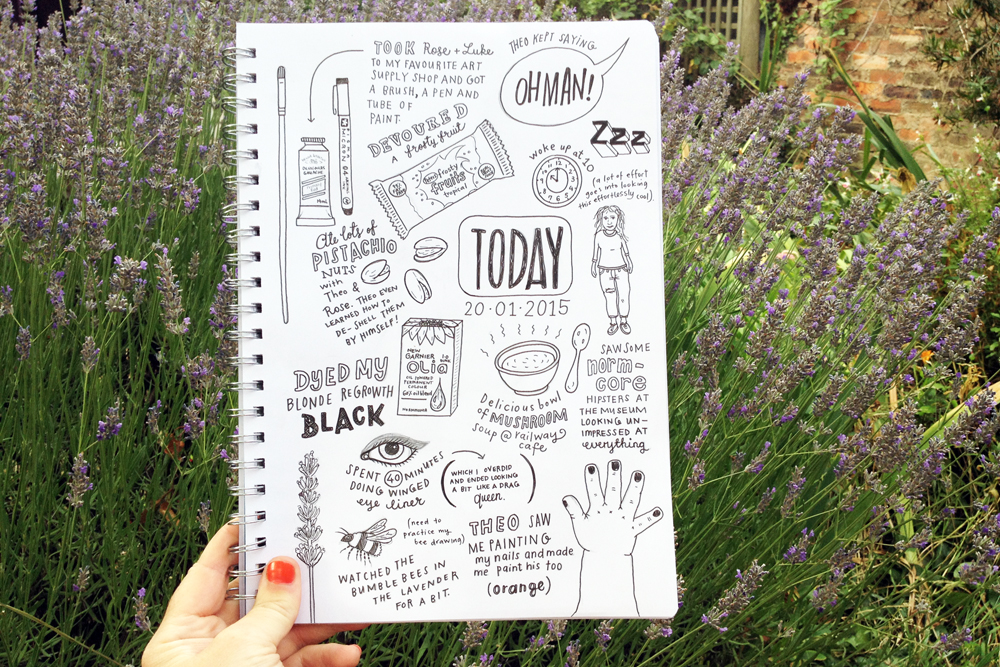 TOOK Rose + Luke
TO MY FAVOURITE ART
SUPPLY SHOP AND GOT
A BRUSH, A PEN AND
TUBE OF
PAINT.
THEO KEPT SAYING
OH MAN!
Zzz
woke up at 10
(a lot of effort
goes into looking
this effortlessly cool)
DEVOURED
a frosty fruit
frosty
fruits
tropical
Ate lots of
PISTACHIO
NUTS
with
Theo &
Rose. THEO EVEN
LEARNED HOW TO
DE-SHELL THEM
BY HIMSELF!
TODAY
20·01·2015
DYED MY
BLONDE REGROWTH
BLACK
NEW
GARNIER
OLiA
OIL POWERED
PERMANENT
COLOUR
Delicious bowl
of MUSHROOM
soup @ railway
cafe
SAW SOME
norm-
core
HIPSTERS AT
THE MUSEUM
LOOKING UN-
IMPRESSED AT
everything
SPENT 40 MINUTES
DOING WINGED
eye liner
(WHICH I OVERDID
AND ENDED LOOKING
A BIT LIKE A DRAG
queen.)
(need to
practice my
bee drawing)
WATCHED THE
BUMBLE BEES IN
THE LAVENDER
FOR A BIT.
THEO SAW
ME PAINTING
my nails and made
me paint his too
(orange)